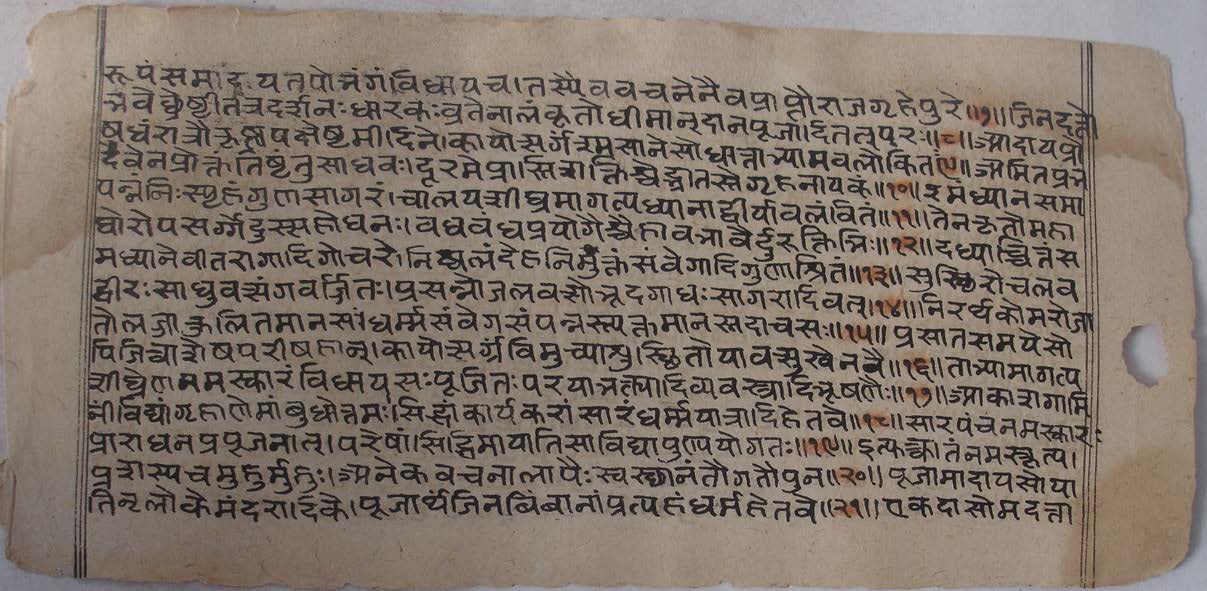 रूपं समादाय तपोभंगं विधाय च। तस्यैव वचनेनैव प्राप्तौ राजगृहे पुरे॥७॥ जिनदत्तो
त्रवै श्रेष्ठी तत्र दर्शनः धारकः व्रतेनालंकृतो धीमान् दानपूजादितत्परः॥८॥ आदाय प्रो
षधं रात्रौ कृष्णपक्षेष्टमीदिने। कायोत्सर्गं स्मसाने सोधात्ताभ्यामवलोकितं॥९॥ अमितप्रभ
देवेन प्रोक्तं तिष्टतु साधवः। दूरमे प्रास्ति शक्तिश्चेद्घातस्वैगृहनायकं॥१०॥ इमं ध्यानसमा
पन्नं निःस्पृहं गुणसागरं। चालय शीघ्रमागत्य ध्यानाद्वीर्यावलंवित॥११॥ तेन कृतो महा
घोरोपसर्गो दुस्सहो घनः। वधवंधप्रयोगैश्चैहावभावैर्दुरुक्तिभिः॥१२॥ दध्याच्चित्तं स
मध्याने वीतरागादिगोचरे। निश्चलं देहनिर्मुक्तं संवेगादिगुणाश्रितं॥१३॥ सुस्थिरोचलव
द्वीरः साधुवत्संगवर्जितः। प्रसन्नो जलवत्सोभूदगाधः सागरादिवत्॥१४॥ निरर्थको मरोजा
तो लज्जाकुलितमानसा। धर्म्मसंवेगसंपन्नस्यक्तमानस्तदा च सः॥१५॥ प्रसातसमये सो
पि जित्वाशेषपरीषहान्। कायोत्सर्गं विमुच्याशु स्थितो यावत्सुखेन वै॥१६॥ ताभ्यामागत्य
शीघ्रेण नमस्कारं विधाय सः पूजितः परया भक्त्या दिव्यवस्त्रादिभूषणैः॥१७॥ आकाशगामि
नीं विद्यां गृहाणेमां बुधोत्तमः। सिद्धां कार्यकरां सारं धर्म्मयात्रादिहेतवे॥१८॥ सारपंचनमस्कारः
प्राराधनप्रपूजनात्। परेषां सिद्धिमायाति सा विद्या पुण्ययोगतः॥१९॥ इत्युक्त्वा तं नमस्कृत्य।
प्रशस्य च मुहुर्मुहुः। अनेकवचनालापैः स्वस्थानं तौ गतौ पुनः॥२०॥ पूजामादाय सो या
ति नृलोके मंदरादिके। पूजार्थं जिनबिंबानां प्रत्यहं धर्महेतवे॥२१॥ एकदा सोमदत्ता